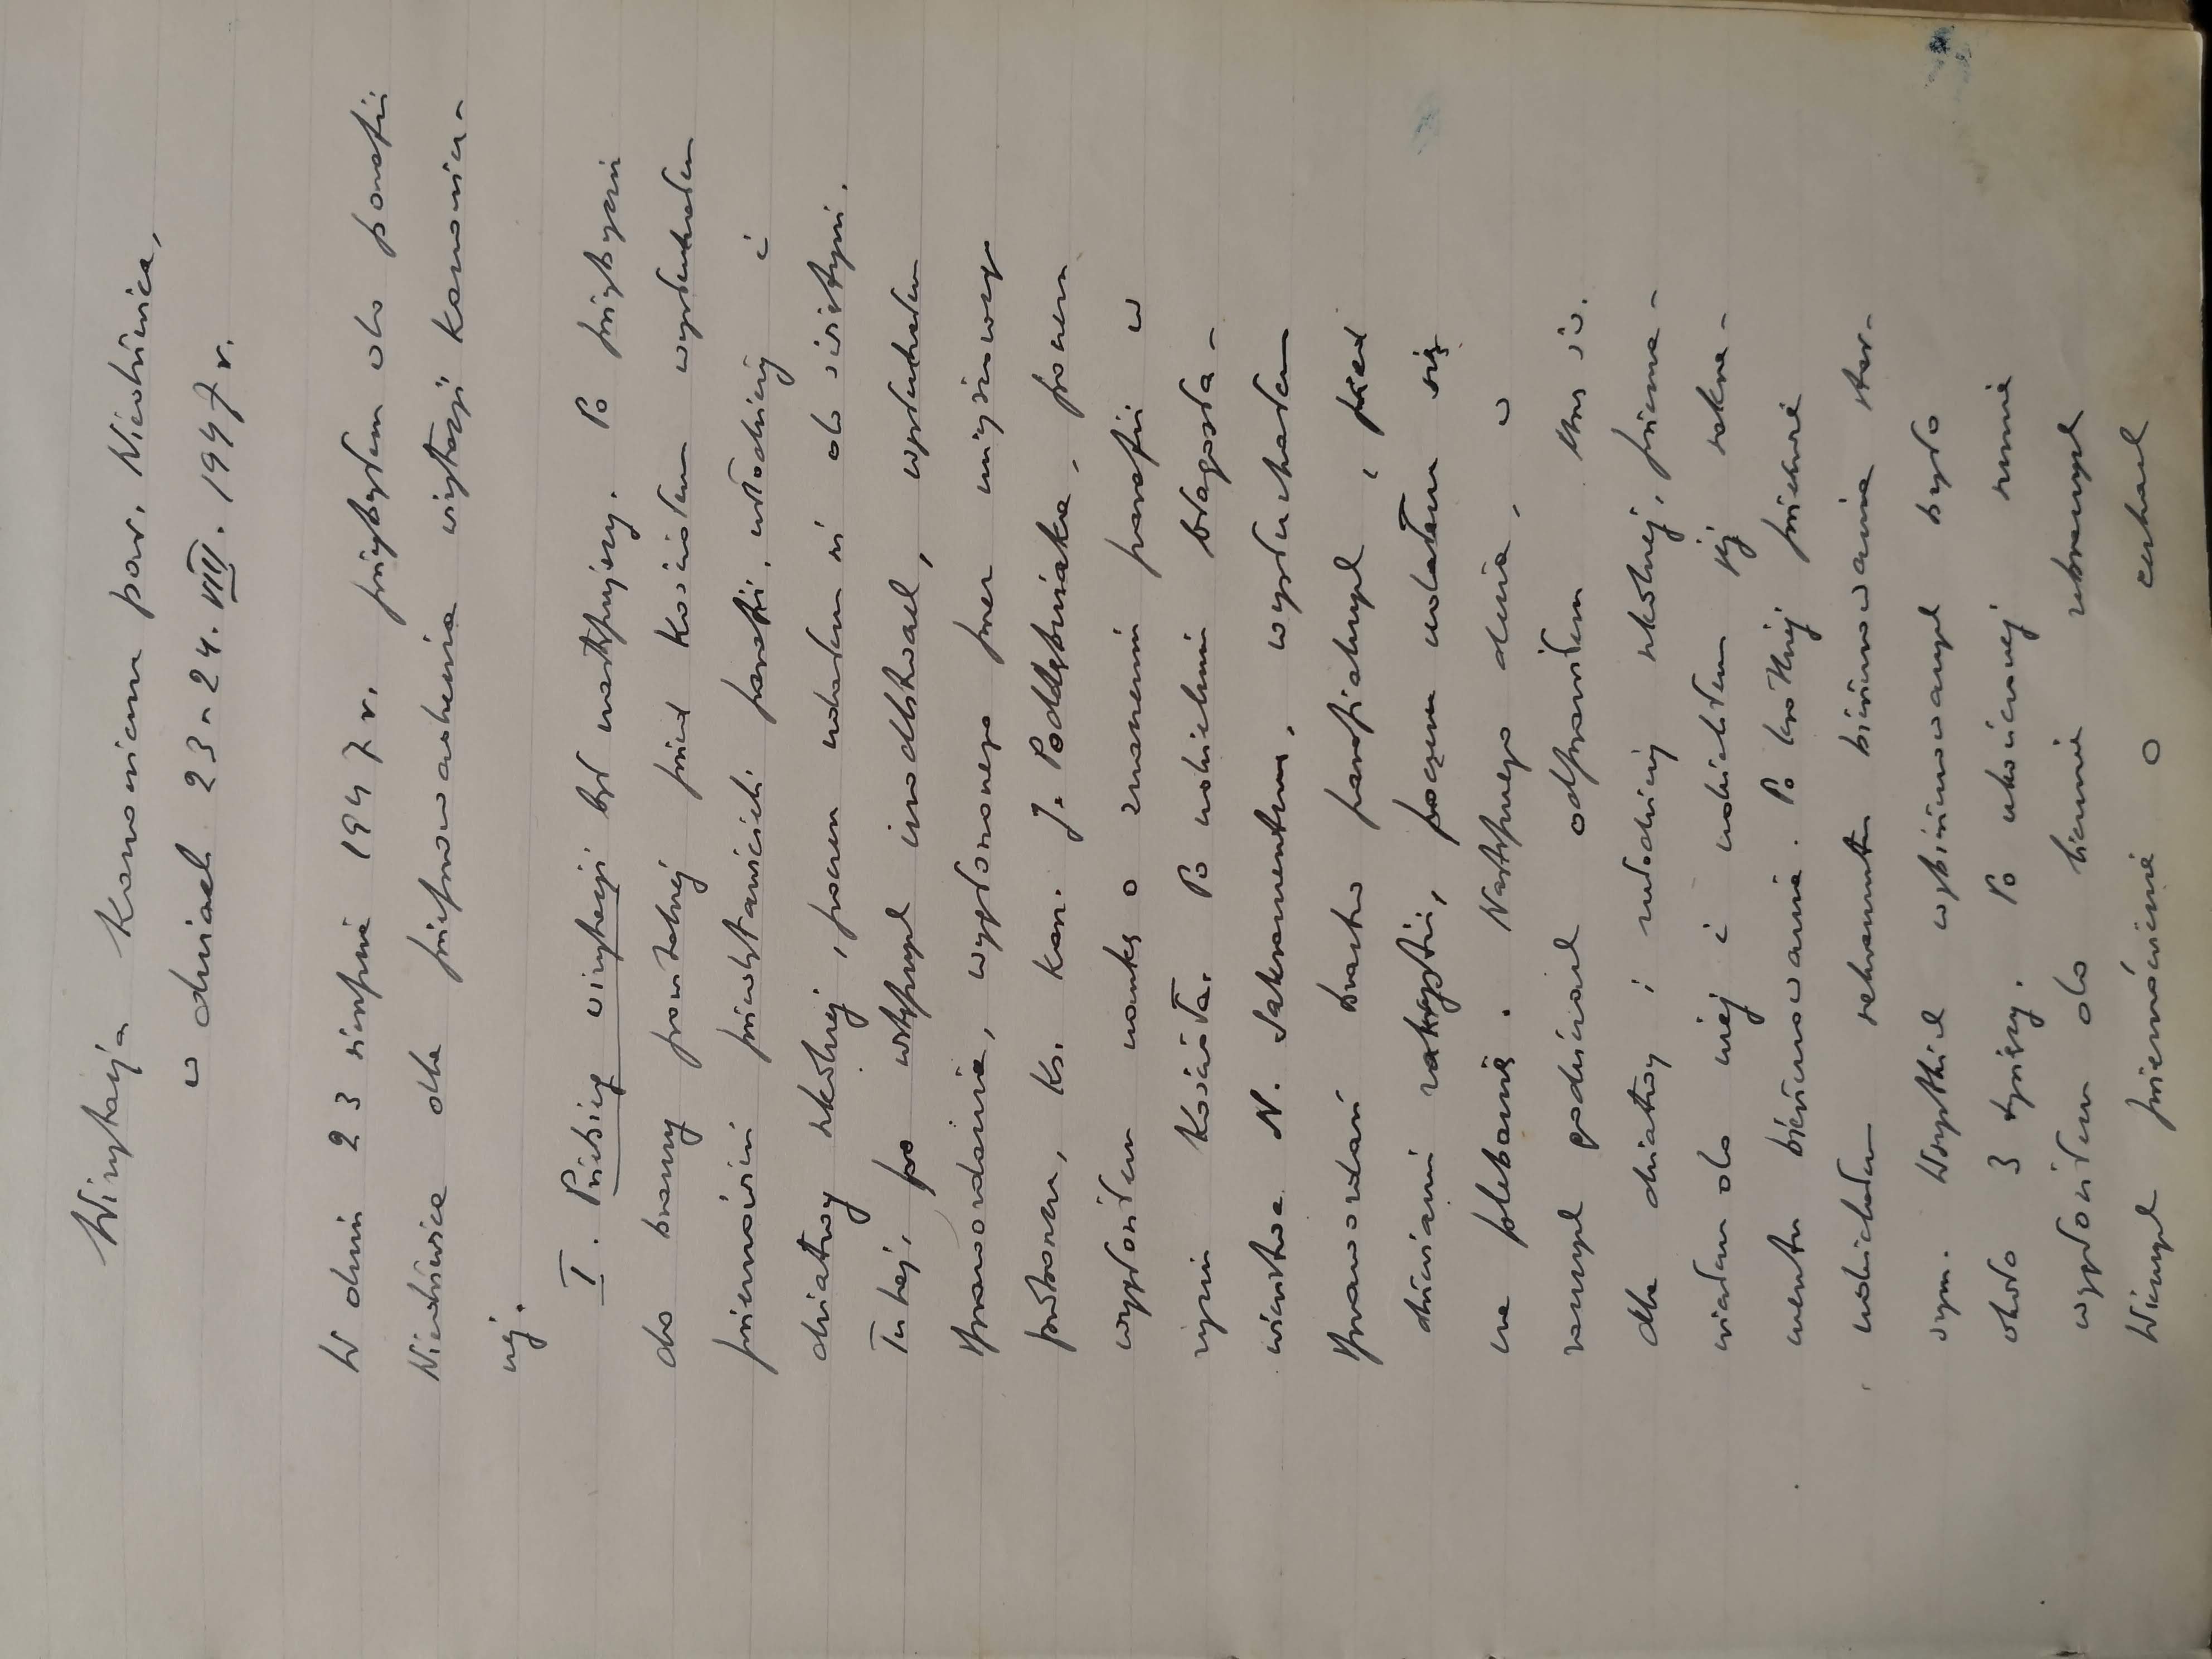 Wizytacja kanoniczna par. Niedrzwica,
w dniach 23-24.VIII.1947 r.
W dniu 23 sierpnia 1947 r. przybyłem do parafii
Niedrzwica dla przeprowadzenia wizytacji kanonicz-
nej.
I. Przebieg wizytacji był następujący. Po przybyciu
do bramy powitalnej przed kościołem wysłuchałem
przemówień przedstawicieli parafii, młodzieży i
dziatwy szkolnej, poczem udałem się do świątyni.
Tutaj, po wstępnych modlitwach, wysłuchałem
sprawozdania, wygłoszonego przez miejscowego
proboszcza, ks. kan. J. Poddębniaka, poczem
wygłosiłem naukę o znaczeniu parafii w
życiu kościoła. Po udzieleniu błogosła-
wieństwa N. Sakramentem, wysłuchałem
sprawozdań bractw parafialnych, przed
drzwiami zakrystii, poczem udałem się
na plebanię. Następnego dnia, w
rannych godzinach odprawiłem Mszę św.
dla dziatwy i młodzieży szkolnej, przema-
wiałem do niej i udzieliłem jej sakra-
mentu bierzmowania. Po krótkiej przerwie
udzielałem sakramentu bierzmowania star-
szym. Wszystkich wybierzmowanych było
około 3 tysięcy. Po ukończonej sumie
wygłosiłem do licznie zebranych
wiernych przemówienie o cechach